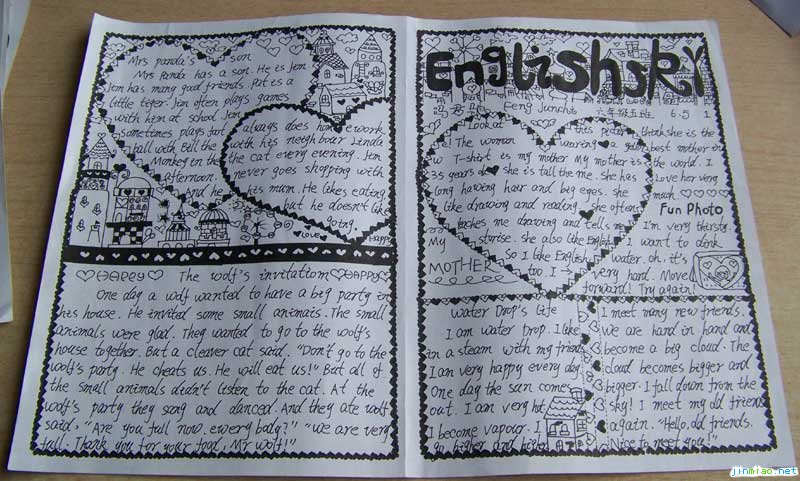 Mrs panda's son
Mrs Panda has a son. He is Jem
Jem has many good friends. Pat is a
little tiger. Jem often plays games
with him at school Jem
sometimes plays foot
ball with Bill the
Monkey in the
afternoon.
And he
always does homework
with his neighbour Linda
the cat every evening. Jem
never goes shopping with
his mum. He likes eating,
but he doesn't like
going.
Love
Happy
HAPPY The wolf's invitation HAPPY
One day a wolf wanted to have a big party in
his house. He invited some small animals. The small
animals were glad. They wanted to go to the wolf's
house together. But a cleaver cat said. "Don't go to the
wolf's party. He cheats us. He will eat us!" But all of
the small animals didn't listen to the cat. At the
wolf's party they song and danced. And they ate wolf
said, "Are you full now. every body?" "We are very
full. Thank you for your food, Mr wolf!"
English
Feng Junchi 六年级五班 6.5 1
Look at this peter
The woman wearing a
T-shirt is my mother My mother is
35 years old she is tall the me. She has
long hawing hair and big eges. she
like drawing and reading. she often
taches me drawing and tells me
starise. she also like English
So I like English
too I
My
MOTHER
think she is the
best mother in
the world. I
Love her very
much.
Fun Photo
I'm very thirsty.
I want to drink
water. oh, it's
very hard. Move
forward! Try again!
Water Drop's Life
I am water Drop. I lake
in a steam with my friend
I am very happy every day
One day the sun comes
out. I am very hot
I become vapour. I
go higher and higher
I meet many new friends.
we are hand in hand and
become a big cloud. The
cloud becomes bigger and
bigger. I fall down from the
sky! I meet my old friends
again. "Hello, old friends.
Nice to meet you!"
jinmiao.net